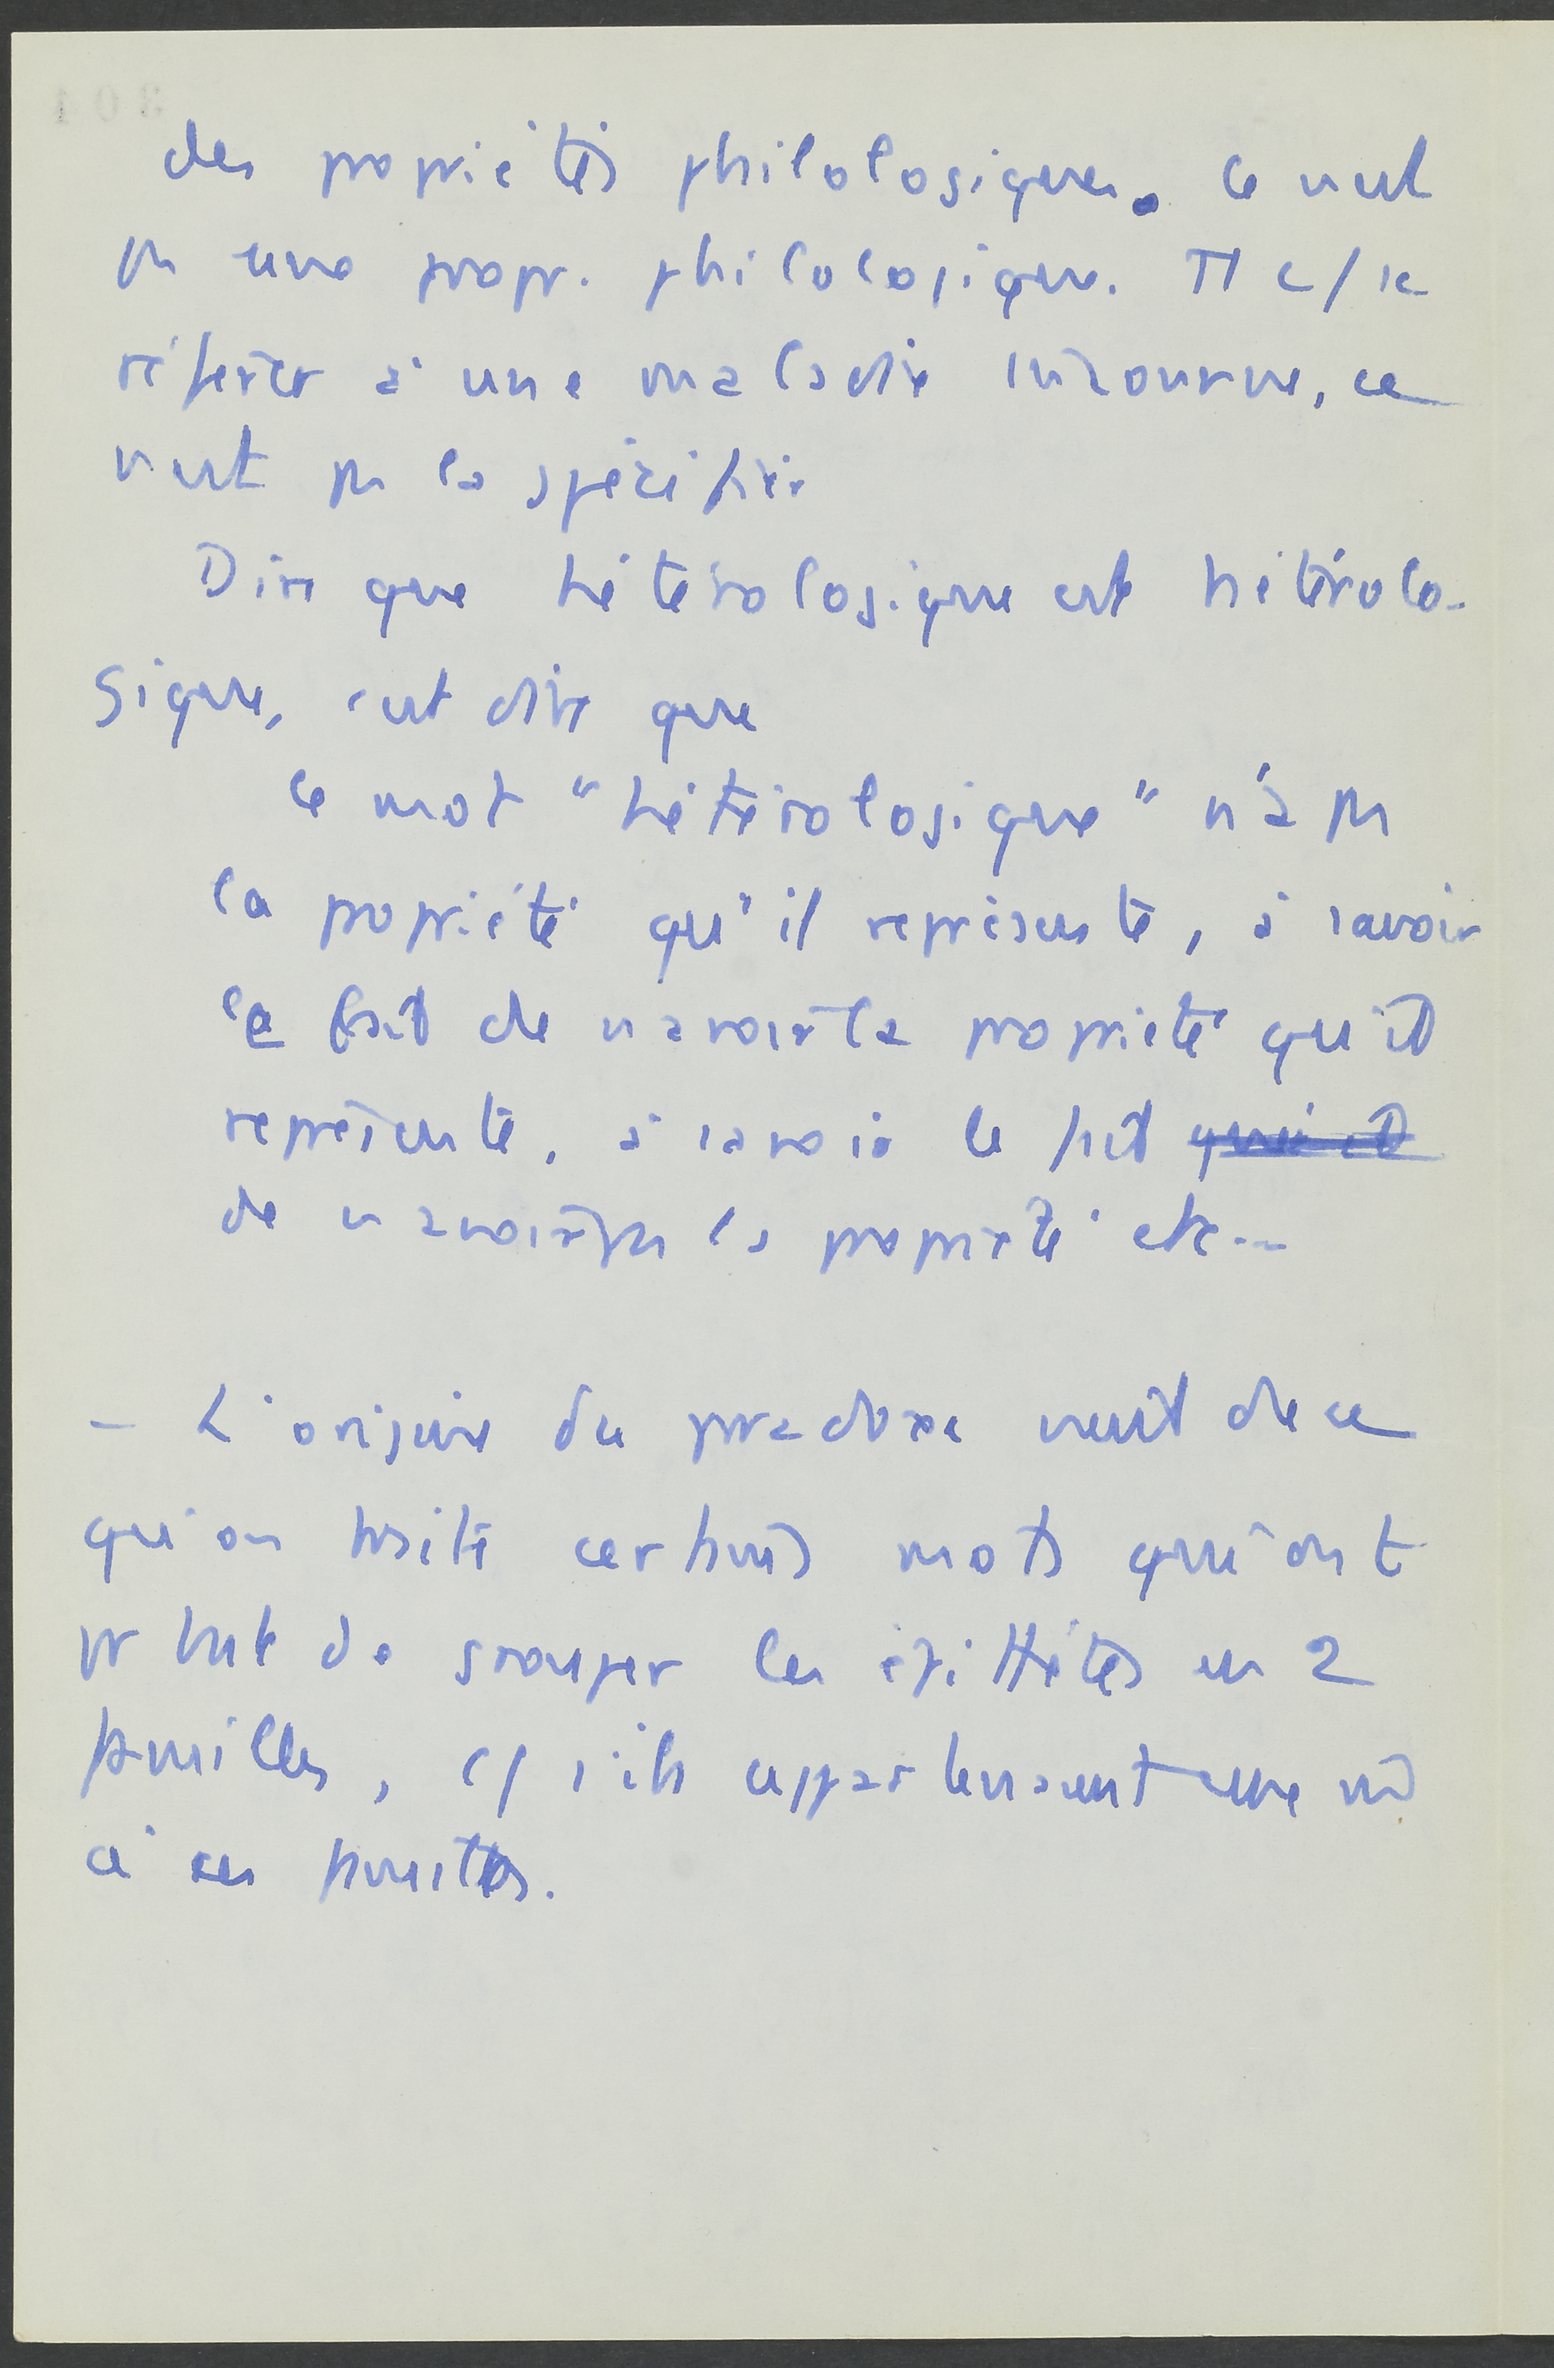 des propriétés philologiques. Ce n'est
pas une propr. philologique. M c/ se
référer à une maladie inconnue, ce
n'est pas la spécifier
Dire que hétérologique est hétérolo-
gique, c'est dire que
le mot "hétérologique" n'a pas
la propriété qu'il représente, à savoir
le fait de n'avoir la propriété qu'il
représente, à savoir le fait qu'il
de n'avoir pas la propriété etc...
- L'origine du paradoxe vient de ce
qu'on traite certains mots qui ont
pr but de grouper les épithètes en 2
familles, c/ s'ils appartenaient eux m
à ces familles.